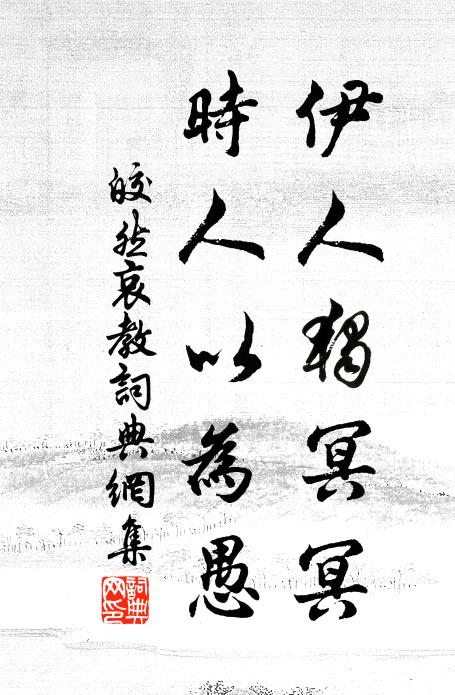 伊人獨冥冥
時人以為愚
皎然哀教詞典網集
詞典網印